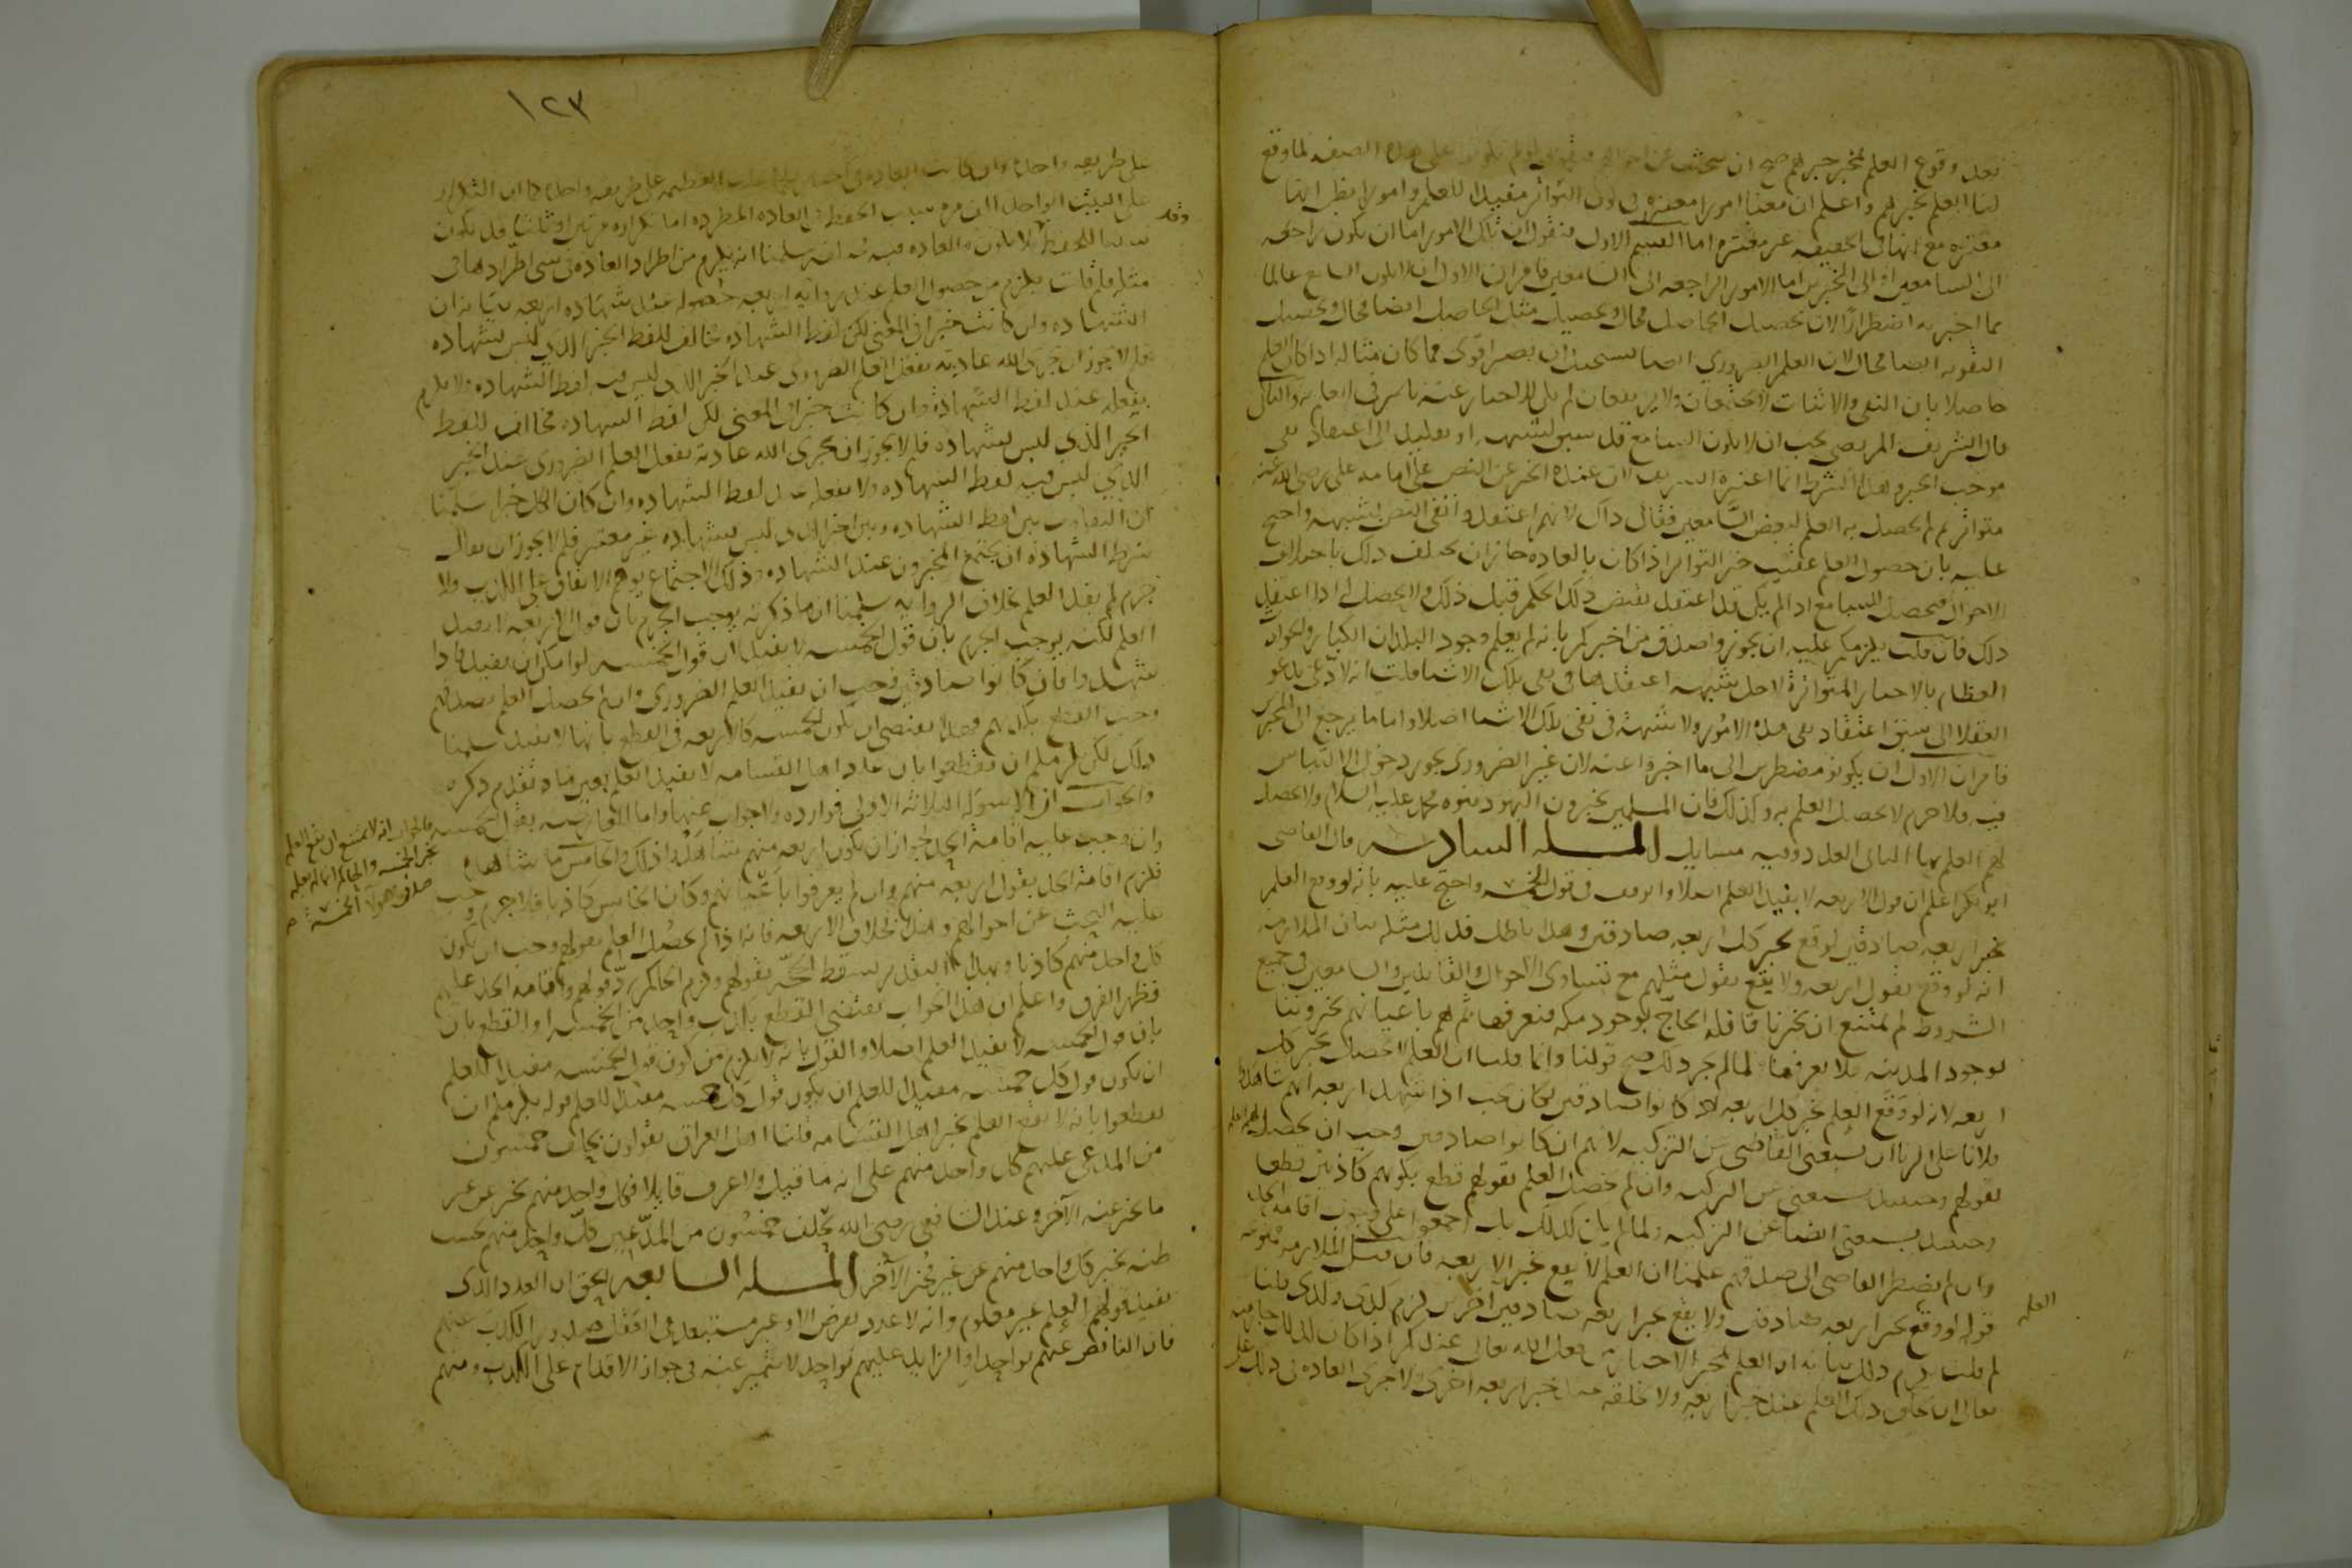 بعد وقوع العلم بخبر خبرهم صح ان نبحث عن احوالهم فنقول لو لم يكونوا على هذه الصفه لما وقع
لنا العلم بخبرهم واعلم ان معنا امورا معتبره فى كون التواتر مفيدا للعلم وامورا يظن انها
معتبره مع انها فى الحقيقه غير معتبره اما القسم الاول فنقول ان تلك الامور اما ان يكون راجعه
الى السامعين او الى المخبرين اما الامور الراجعه الى السامعين فامران الاول ان لا يكون السامع عالما
بما اخبر به اضطرارا لان تحصيل الحاصل محال وتحصيل مثل الحاصل ايضا محال وتحصيل
التقويه ايضا محال لان العلم الضرورى ايضا يستحيل ان يصير اقوى مما كان مثاله اذا كان العلم
حاصلا بان النفى والاثبات لا يجتمعان ولا يرتفعان لم يكن للاخبار عنه تاثير فى ايجابه والثانى
قال الشريف المرتضى يجب ان لا يكون السامع قد سبق لشبهه او تقليد الى اعتقاد نفى
موجب الخبر وهذا الشرط انما اعتبره الشريف لان عنده الخبر عن النص على امامه على رضى الله عنه
متواتر ثم لم يحصل به العلم لبعض السامعين فقال ذاك لانهم اعتقدوا نفى النص لشبهه واحتج
عليه بان حصول العلم عقيب خبر التواتر اذا كان بالعاده جاز ان يختلف ذلك باختلاف
الاحوال فيحصل للسامع اذا لم يكن قد اعتقد نقيض ذلك الحكم قبل ذلك ولا يحصل له اذا اعتقد
ذلك فان قلت يلزمكم عليه ان تجوزوا صدق من اخبركم بانه لم يعلم وجود البلدان الكبار والحوادث
العظام بالاخبار المتواترة لاجل شبهه اعتقدها فى نفى تلك الاشيا قلت انه لا داعى يدعو
العقلا الى سبق اعتقاد نفى هذه الامور ولا شبهة فى نفى تلك الاشيا اصلا واما ما يرجع الى المخبرين
فامران الاول ان يكونوا مضطرين الى ما اخبروا عنه لان غير الضرورى يجوز دخول الالتباس
فيه فلا جرم لا يحصل العلم به وكذلك فان المسلمين يخبرون اليهود بنبوه محمد عليه السلام ولا يحصل
لهم العلم بها الثانى العدد وفيه مسايل المسله السادسه قال القاضى
ابو بكر اعلم ان قول الاربعه لا يفيد العلم اصلا واتوقف فى قول الخمسه واحتج عليه بانه لو وقع العلم
بخبر اربعه صادقين لوقع بخبر كل اربعه صادقين وهذا باطل فذلك مثله بيان الملازمه
انه لو وقع بقول اربعه ولا يقع بقول مثلهم مع تساوى الاحوال والقائلين والسامعين فى جميع
الشروط لم يمتنع ان يخبرنا قافله الحاج بوجود مكه فنعرفها ثم هم باعيانهم يخبروننا
بوجود المدينه فلا نعرفها فلما لم يجز ذلك صح قولنا وانما قلنا ان العلم لا يحصل بخبر كل
اربعه لانه لو وقع العلم بخبر كل اربعه اذا كانوا صادقين لكان يجب اذا شهد اربعه انهم شاهدوا
فلانا على الزنا ان يستغنى القاضى عن التزكيه لانهم ان كانوا صادقين وجب ان يحصل لهم العلم
بقولهم وحينئذ يستغنى عن التزكيه وان لم يحصل العلم بقولهم قطع بكونهم كاذبين قطعا
وحينئذ يستغنى ايضا عن التزكيه ولما لم يكن كذلك بل اجمعوا على وجوب اقامه الحد
وان لم يضطر القاضى الى صدقهم علمنا ان العلم لا يقع بخبر الاربعه فان قيل الملازمه ممنوعه
قوله لو وقع بخبر اربعه صادقين ولا يقع بخبر اربعه صادقين آخرين لزم كذى وكذى قلنا
لم قلت يلزم ذلك بيانه ان العلم بمخبر الاخبار من فعل الله تعالى عندكم اذا كان كذلك جاز منه
تعالى ان يخلق ذلك العلم عند خبر اربعه ولا يخلقه عند خبر اربعه اخرى ولا جرى العاده فى ذلك
العلم
١٢٣
على طريقه واحده وان كانت العاده فى على طريقه واحده كما ان التكرار
على البيت الواحد الف مره سبب الحفظ فى العاده المطرده اما تكراره مرتين او ثلثا قد يكون
وقد
سببا للحفظ لا يكون والعاده فيه مختلفه سلمنا انه يلزم من اطراد العاده فى شى اطرادها فى
مثله فلم قلت يلزم من حصول العلم عند روايه اربعه حصوله عند شهاده اربعه بيانه ان
الشهاده وان كانت خبرا فى المعنى لكن لفظ الشهاده مخالف للفظ الخبر الذى ليس بشهاده
فلم لا يجوز ان يجرى الله عادته بفعل العلم الضرورى عند الخبر الذى ليس فيه لفظ الشهاده ولا يلزم
بفعله عند لفظ الشهادة وان كانت خبرا فى المعنى لكن لفظ الشهاده مخالف للفظ
الخبر الذى ليس بشهاده فلم لا يجوز ان يجرى الله عادته بفعل العلم الضرورى عند الخبر
الذى ليس فيه لفظ الشهاده ولا يفعله عند لفظ الشهاده وان كان الكل خبرا سلمنا
ان التفاوت بين لفظ الشهاده وبين الخبر الذى ليس بشهاده غير معتبر فلم لا يجوز ان يقال
شرط الشهاده ان يجتمع المخبرون عند الشهاده وذلك الاجتماع يوهم الاتفاق على الكذب فلا
جرم لم يفد العلم بخلاف الروايه سلمنا ان ما ذكرته يوجب الجزم بان قول الاربعه لا يفيد
العلم لكنه يوجب الجزم بان قول الخمسه لا يفيده لان قول الخمسه لو امكن ان يفيد فاذا
شهدوا فان كانوا صادقين وجب ان يفيد العلم الضرورى وان لم يحصل العلم بصدقهم
وجب القطع بكذبهم وهذا يقتضى ان يكون الخمسه كالاربعه فى القطع بانها لا تفيد سلمنا
ذلك لكن يلزمكم ان تقطعوا بان عدد اهل القسامه لا يفيد العلم بعين ما تقدم ذكره
والجواب ان الاسوله الثلاثه الاولى فوارده ولا جواب عنها واما النقض بقول الخمسه
فالجواب انه لا يمتنع ان يقع العلم
بخبر الخمسه والحاكم انما لم يعلم
صدق هولآ الخمسه صح
وان وجب عليه اقامة الحد لجواز ان يكون اربعه منهم شاهدوا ذلك والخامس ما شاهد
فلزم اقامة الحد بقول اربعه منهم وان لم يعرفوا باعيانهم وكان الخامس كاذبا فلا جرم وجب
عليه البحث عن احوالهم وهذا بخلاف الاربعه فانه اذا لم يحصل العلم بقولهم وجب ان يكون
كل واحد منهم كاذبا وبهذا التقدير يسقط الحجه بقولهم ولزم الحاكم رد قولهم واقامه الحد عليهم
فظهر الفرق واعلم ان هذا الجواب يقتضى القطع بكذب واحد من الخمسه او القطع بان
بان قول الخمسه لا يفيد العلم اصلا والقول بانه لا يلزم من كون قول خمسه مفيدا للعلم
ان يكون قول كل خمسه مفيدا للعلم ان يكون قول كل خمسه مفيدا للعلم قوله يلزمكم ان
تقطعوا بانه لا يقع العلم بخبر اهل القسامه قلنا اهل العراق يقولون يحلف خمسون
من المدعى عليهم كل واحد منهم على انه ما قتل ولا عرف قاتلا فكل واحد منهم يخبر عن غير
ما يخبر عنه الآخر وعند الشافعى رضى الله يحلف خمسون من المدعين كل واحد منهم بحسب
ظنه يخبر كل واحد منهم عن غير مخبر الآخر المسله السابعه الحق ان العدد الذى
يفيد قولهم العلم غير معلوم وانه لا عدد يفرض الا وغير مستبعد فى العقل صدور الكذب عنهم
فان الناقص عنهم بواحد او الزايد عليهم بواحد لا يتميز عنه فى جواز الاقدام على الكذب ومنهم